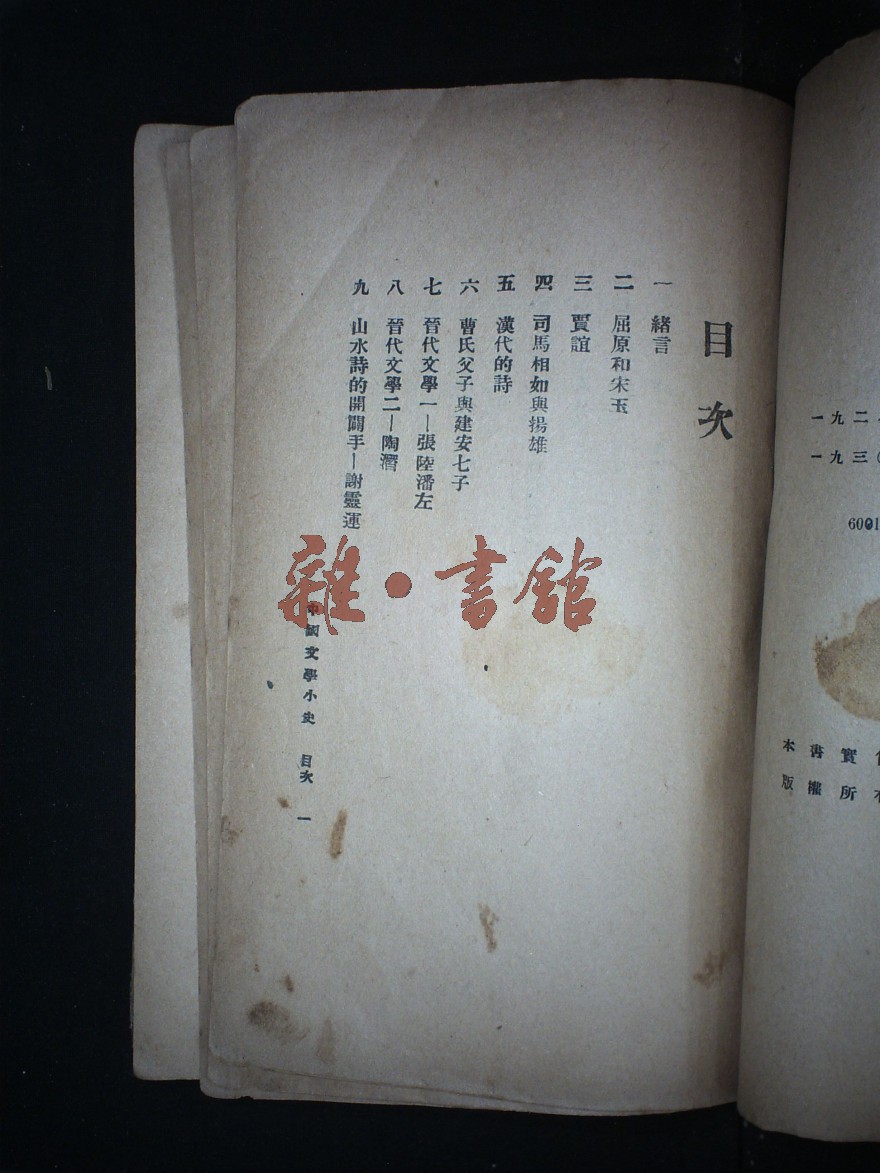 一九二
一九三
6001
本書實
版權所
目次
一 緒言
二 屈原和宋玉
三 賈誼
四 司馬相如與揚雄
五 漢代的詩
六 曹氏父子與建安七子
七 晉代文學一—張陸潘左
八 晉代文學二—陶潛
九 山水詩的開闢手—謝靈運
中國文學小史 目次 一
雜·書館